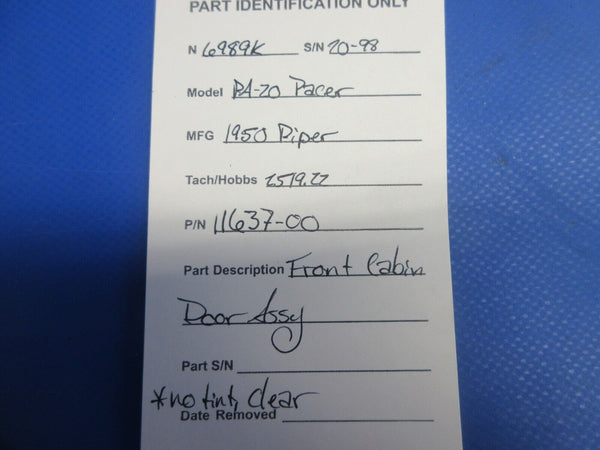 PART IDENTIFICATION ONLY
N 6989K S/N 20-98
Model PA-20 Pacer
MFG 1950 Piper
Tach/Hobbs 2519.22
P/N 11637-00
Part Description Front Cabin
Door Assy
Part S/N
*no tint, clear
Date Removed